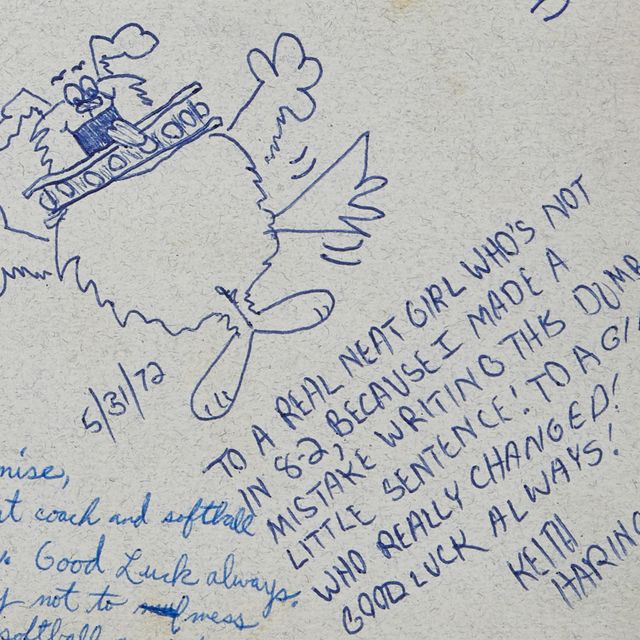 5/31/72
TO A REAL NEAT GIRL WHO'S NOT
IN 8-2, BECAUSE I MADE A
MISTAKE WRITING THIS DUMB
LITTLE SENTENCE! TO A GI
WHO REALLY CHANGED!
GOOD LUCK ALWAYS!
KEITH
HARING
nise,
at coach and softball
Good Luck always.
not to mess
softball